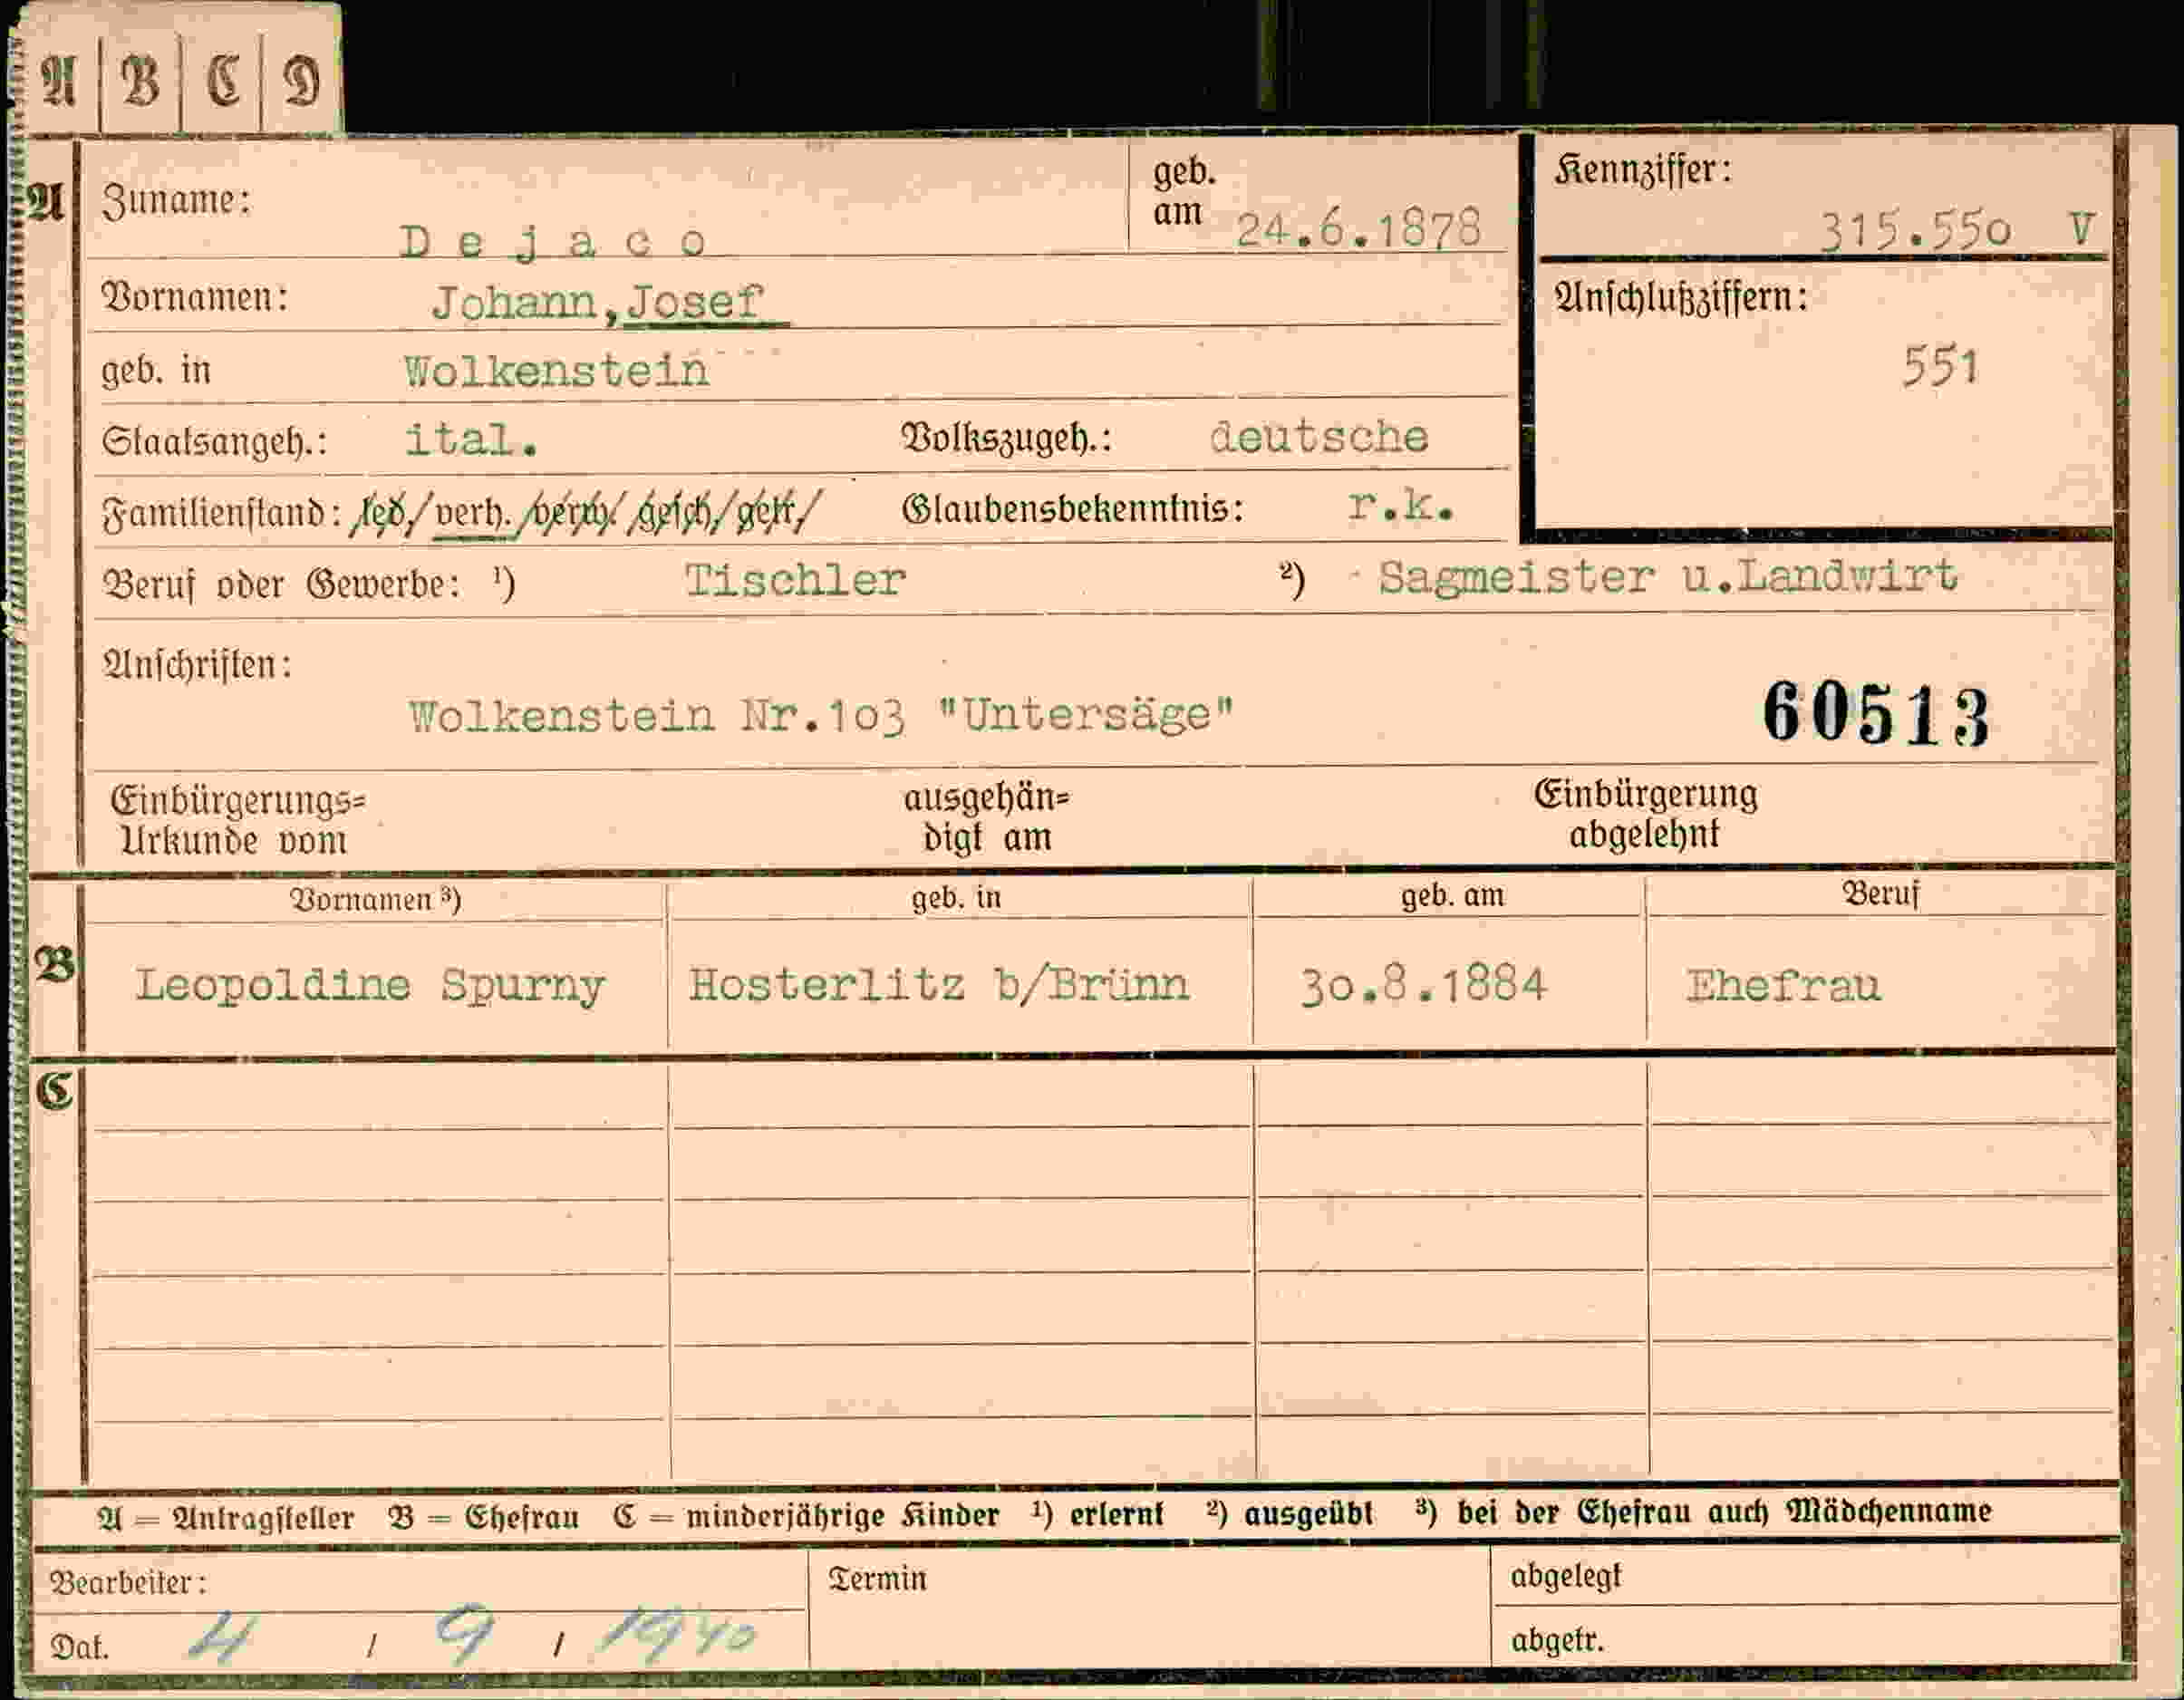 A B C D
A
Zuname: D e j a c o
geb. am 24.6.1878
Kennziffer: 315.55o V
Vornamen: Johann, Josef
Anschlußziffern: 551
geb. in Wolkenstein
Staatsangeh.: ital. Volkszugeh.: deutsche
Familienstand: led./verh./verw./gesch./getr./ Glaubensbekenntnis: r.k.
Beruf oder Gewerbe: ¹) Tischler ²) Sagmeister u.Landwirt
Anschriften:
Wolkenstein Nr.1o3 "Untersäge" 60513
Einbürgerungs=
Urkunde vom
ausgehän=
digt am
Einbürgerung
abgelehnt
Vornamen ³) geb. in geb. am Beruf
B Leopoldine Spurny Hosterlitz b/Brünn 3o.8.1884 Ehefrau
C
A = Antragsteller B = Ehefrau C = minderjährige Kinder ¹) erlernt ²) ausgeübt ³) bei der Ehefrau auch Mädchenname
Bearbeiter: Termin abgelegt
Dat. 4 / 9 / 1940 abgetr.